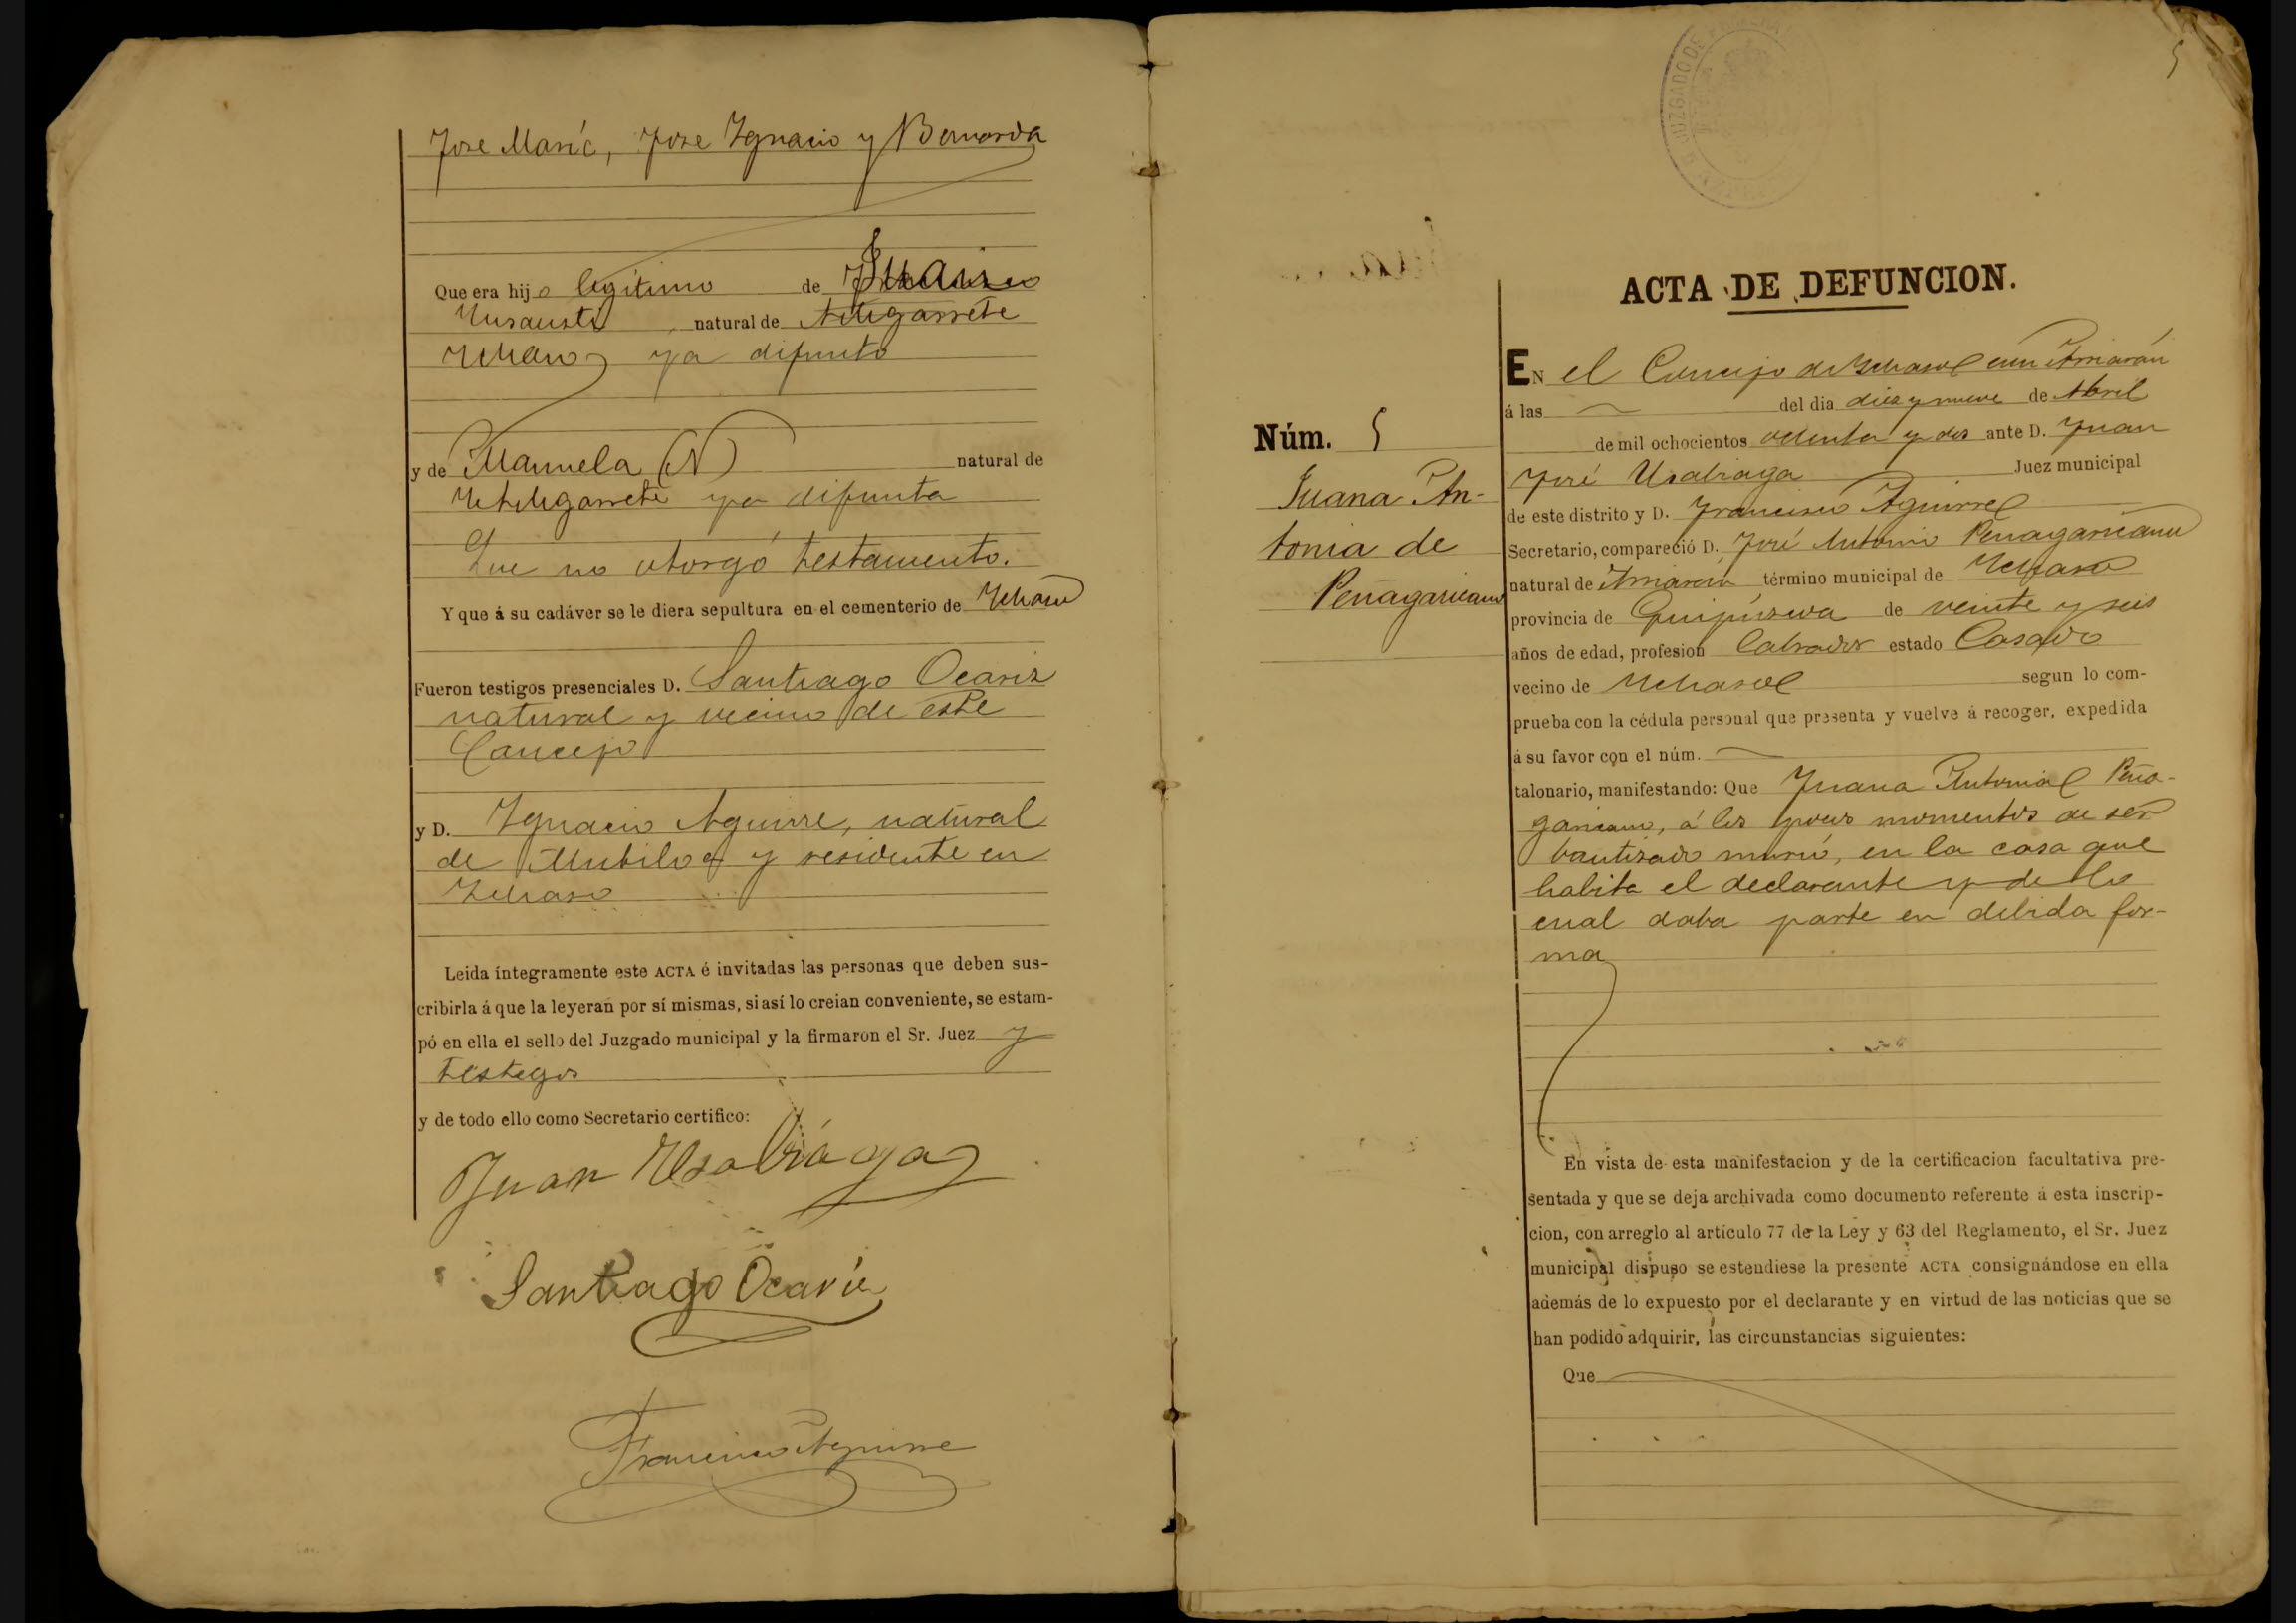 Jose María, Jose Ygnacio y Bernarda
Que era hijo legitimo de
natural de
ya difunto
y de Manuela (N) natural de
ya difunta
Que no otorgó testamento.
Y que á su cadáver se le diera sepultura en el cementerio de Ychaso
Fueron testigos presenciales D. Santiago Ocariz
natural y vecino de este
Concejo
y D. Ygnacio Aguirre, natural
de Mutiloa y residente en
Ychaso
Leida íntegramente este ACTA é invitadas las personas que deben sus-
cribirla á que la leyeran por sí mismas, si así lo creian conveniente, se estam-
pó en ella el sello del Juzgado municipal y la firmaron el Sr. Juez y
testigos
y de todo ello como Secretario certifico:
Juan Usabiaga
Santiago Ocariz
Francisco Aguirre
5
JUZGADO DE
ACTA DE DEFUNCION.
Núm. 5
Juana An-
tonia de
Peñagaricano
EN el Concejo de Ychaso con Arriarán
á las del dia diez y nueve de Abril
de mil ochocientos ochenta y dos ante D. Juan
José Usabiaga Juez municipal
de este distrito y D. Francisco Aguirre
Secretario, compareció D. José Antonio Peñagaricano
natural de Arriarán término municipal de Ychaso
provincia de Guipúzcoa de veinte y seis
años de edad, profesion labrador estado Casado
vecino de Ychaso segun lo com-
prueba con la cédula personal que presenta y vuelve á recoger, expedida
á su favor con el núm.
talonario, manifestando: Que Juana Antonia Peña-
garicano, á los pocos momentos de ser
bautizado murió, en la casa que
habita el declarante y de lo
cual daba parte en debida for-
ma
En vista de esta manifestacion y de la certificacion facultativa pre-
sentada y que se deja archivada como documento referente á esta inscrip-
cion, con arreglo al artículo 77 de la Ley y 63 del Reglamento, el Sr. Juez
municipal dispuso se estendiese la presente ACTA consignándose en ella
además de lo expuesto por el declarante y en virtud de las noticias que se
han podido adquirir, las circunstancias siguientes:
Que